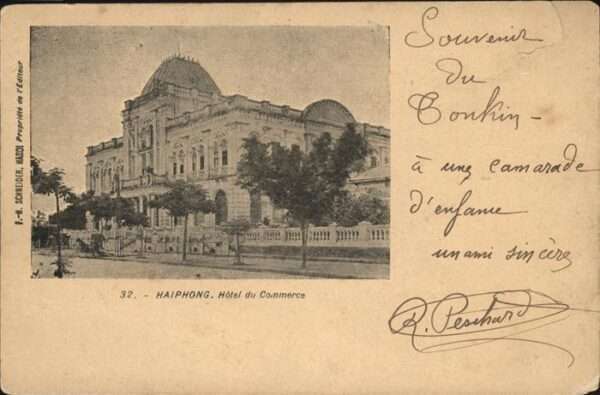 Souvenir
du
Tonkin -
à une camarade
d'enfance
un ami sincère
R. Peschard
F.-H. SCHNEIDER, HANOI Propriété de l'Éditeur
32. - HAIPHONG. Hôtel du Commerce